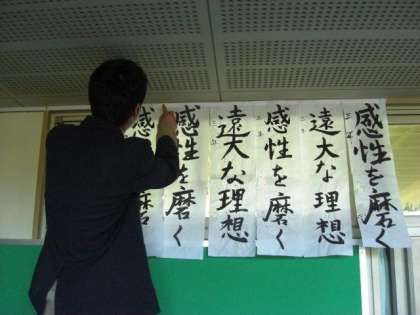 感性を磨く
遠大な理想
感性を磨く
遠大な理想
感性を磨く
感 磨